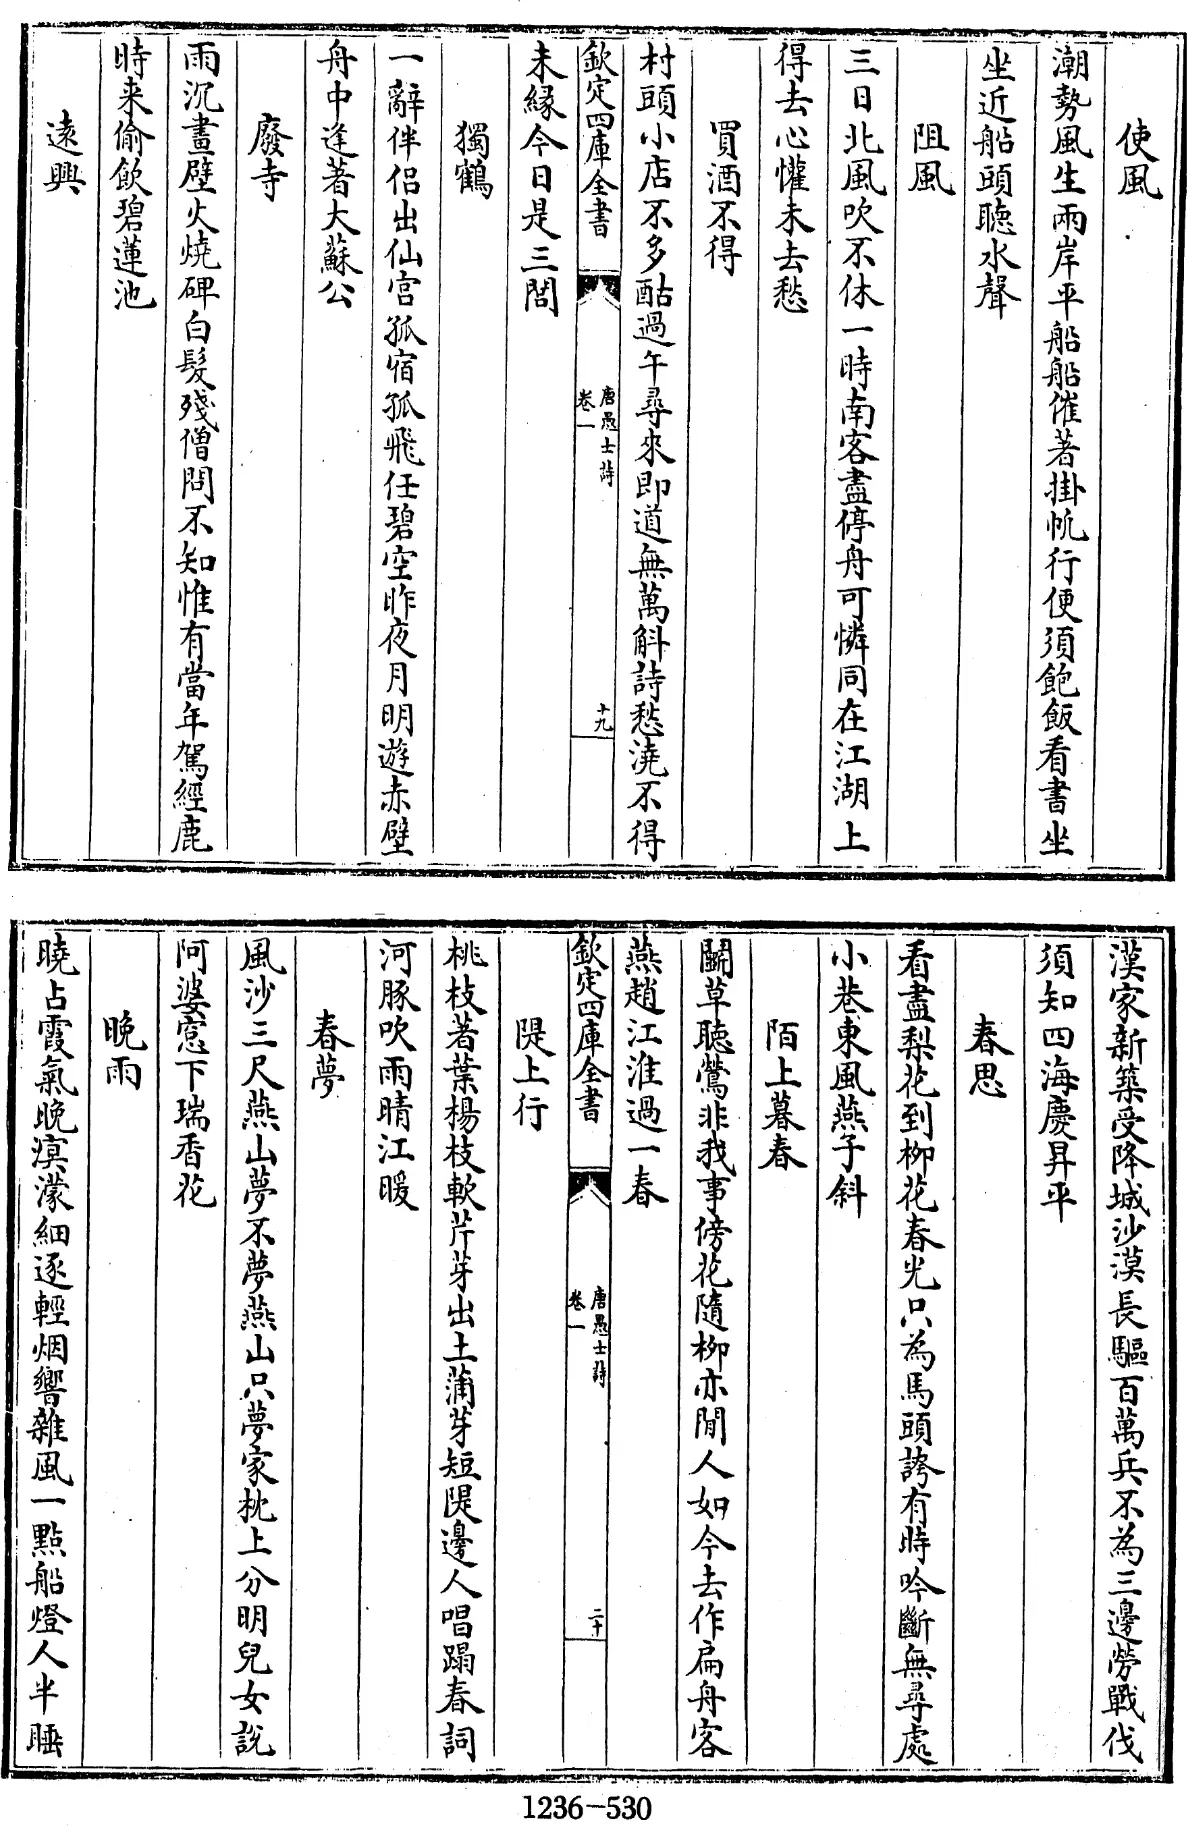 使風
潮勢風生兩岸平船船催著掛帆行便須飽飯看書坐
坐近船頭聽水聲
阻風
三日北風吹不休一時南客盡停舟可憐同在江湖上
得去心懽未去愁
買酒不得
村頭小店不多酤過午尋來即道無萬斛詩愁澆不得
欽定四庫全書
唐愚士詩
卷一
十九
未緣今日是三閭
獨鶴
一辭伴侶出仙宮孤宿孤飛任碧空昨夜月明遊赤壁
舟中逢著大蘇公
廢寺
雨沉畫壁火燒碑白髮殘僧問不知惟有當年駕經鹿
時来偷飲碧蓮池
遠興
漢家新築受降城沙漠長驅百萬兵不為三邊勞戰伐
須知四海慶昇平
春思
看盡梨花到柳花春光只為馬頭誇有時吟斷無尋處
小巷東風燕子斜
陌上暮春
鬬草聽鶯非我事傍花隨柳亦閒人如今去作扁舟客
燕趙江淮過一春
欽定四庫全書
唐愚士詩
卷一
二十
隄上行
桃枝著葉楊枝軟芹芽出土蒲芽短隄邊人唱蹋春詞
河豚吹雨晴江暖
春夢
風沙三尺燕山夢不夢燕山只夢家枕上分明兒女說
阿婆窓下瑞香花
晚雨
曉占霞氣晚溟濛細逐輕烟響雜風一點船燈人半睡
1236-530